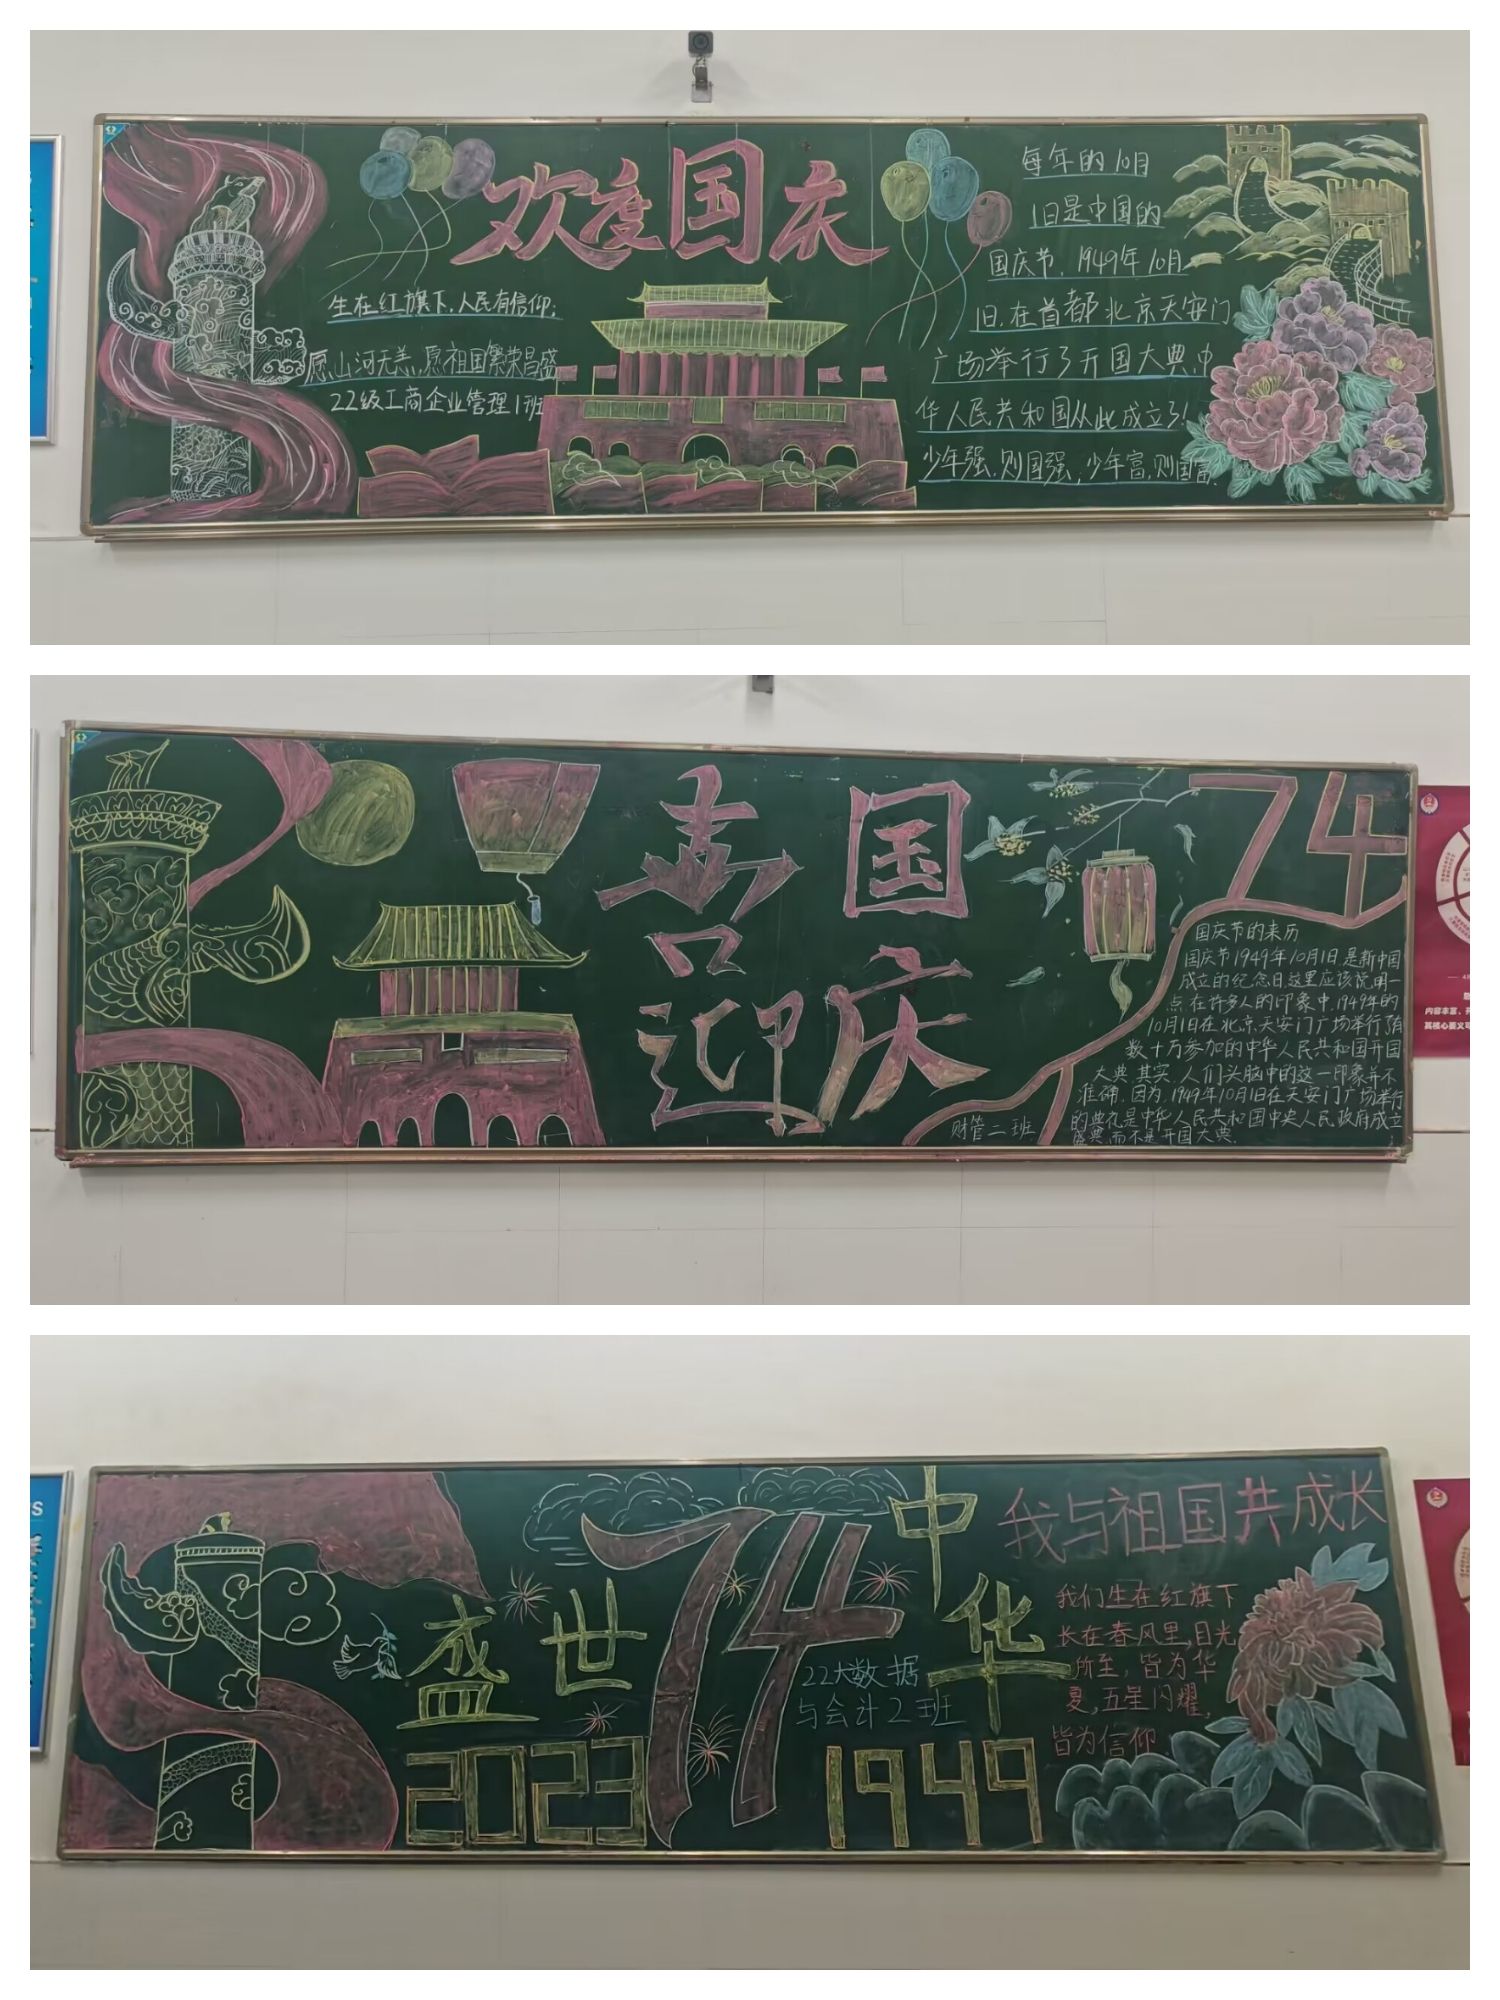 欢度国庆
生在红旗下,人民有信仰;
愿山河无恙,愿祖国繁荣昌盛
22级工商企业管理1班
每年的10月
1日是中国的
国庆节,1949年10月
1日,在首都北京天安门
广场举行了开国大典,中
华人民共和国从此成立了!
少年强,则国强,少年富,则国富.
喜迎
国庆
74
国庆节的来历
国庆节1949年10月1日,是新中国
成立的纪念日.这里应该说明一
点,在许多人的印象中,1949年的
10月1日在北京天安门广场举行了有
数十万参加的中华人民共和国开国
大典.其实,人们头脑中的这一印象并不
准确.因为,1949年10月1日在天安门广场举行
的典礼是中华人民共和国中央人民政府成立
盛典,而不是开国大典.
财管二班
内容丰富、
其核心要义可
盛世
74
中华
2023
1949
22大数据
与会计2班
我与祖国共成长
我们生在红旗下
长在春风里,目光
所至,皆为华
夏,五星闪耀,
皆为信仰.